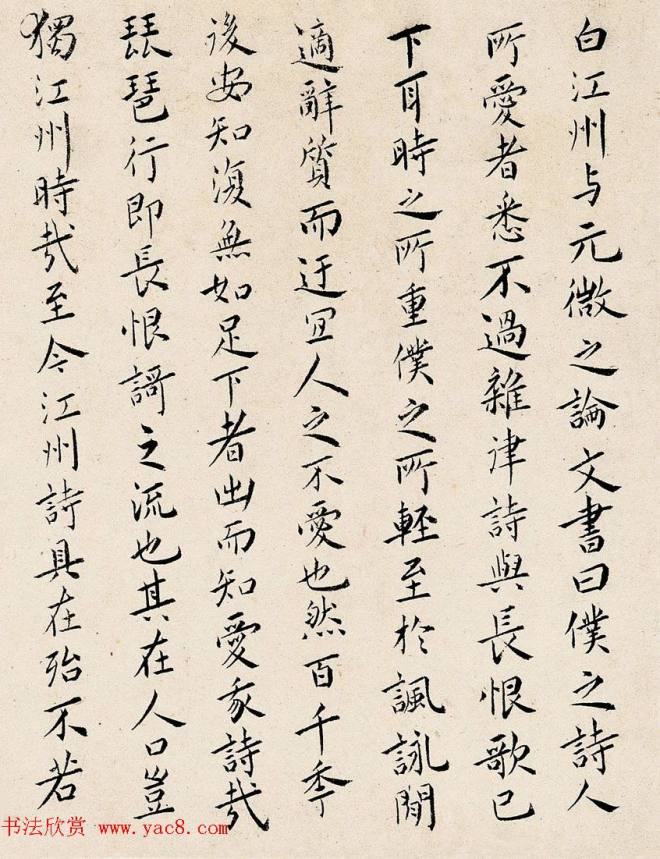 白江州与元微之論文書曰僕之詩人
所愛者悉不過雜律詩與長恨歌已
下耳時之所重僕之所輕至於諷詠閒
適辭質而迂宜人之不愛也然百千季
後安知復無如足下者出而知愛我詩哉
琵琶行即長恨謌之流也其在人口豈
獨江州時哉至今江州詩具在殆不若
书法欣赏 www.yac8.com